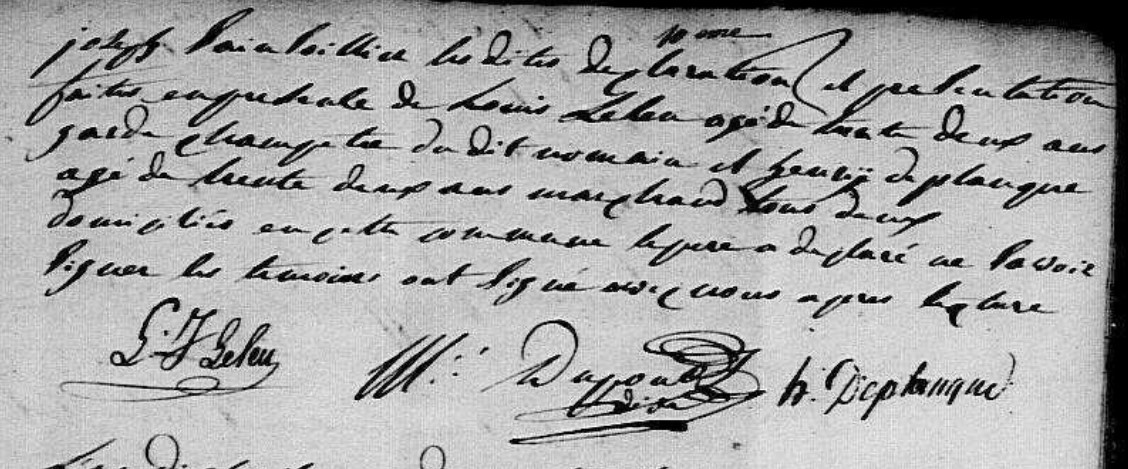 joseph les dites declaration et presentation
faites en presence de Louis Leleu agé de trente deux ans
garde champetre du dit et henri deplanque
agé de trente deux ans marchand tous deux
domiciliés en cette commune le pere a declaré ne savoir
signer les temoins ont signé avec nous apres lecture
L. J Leleu Dupont h. Deplanque